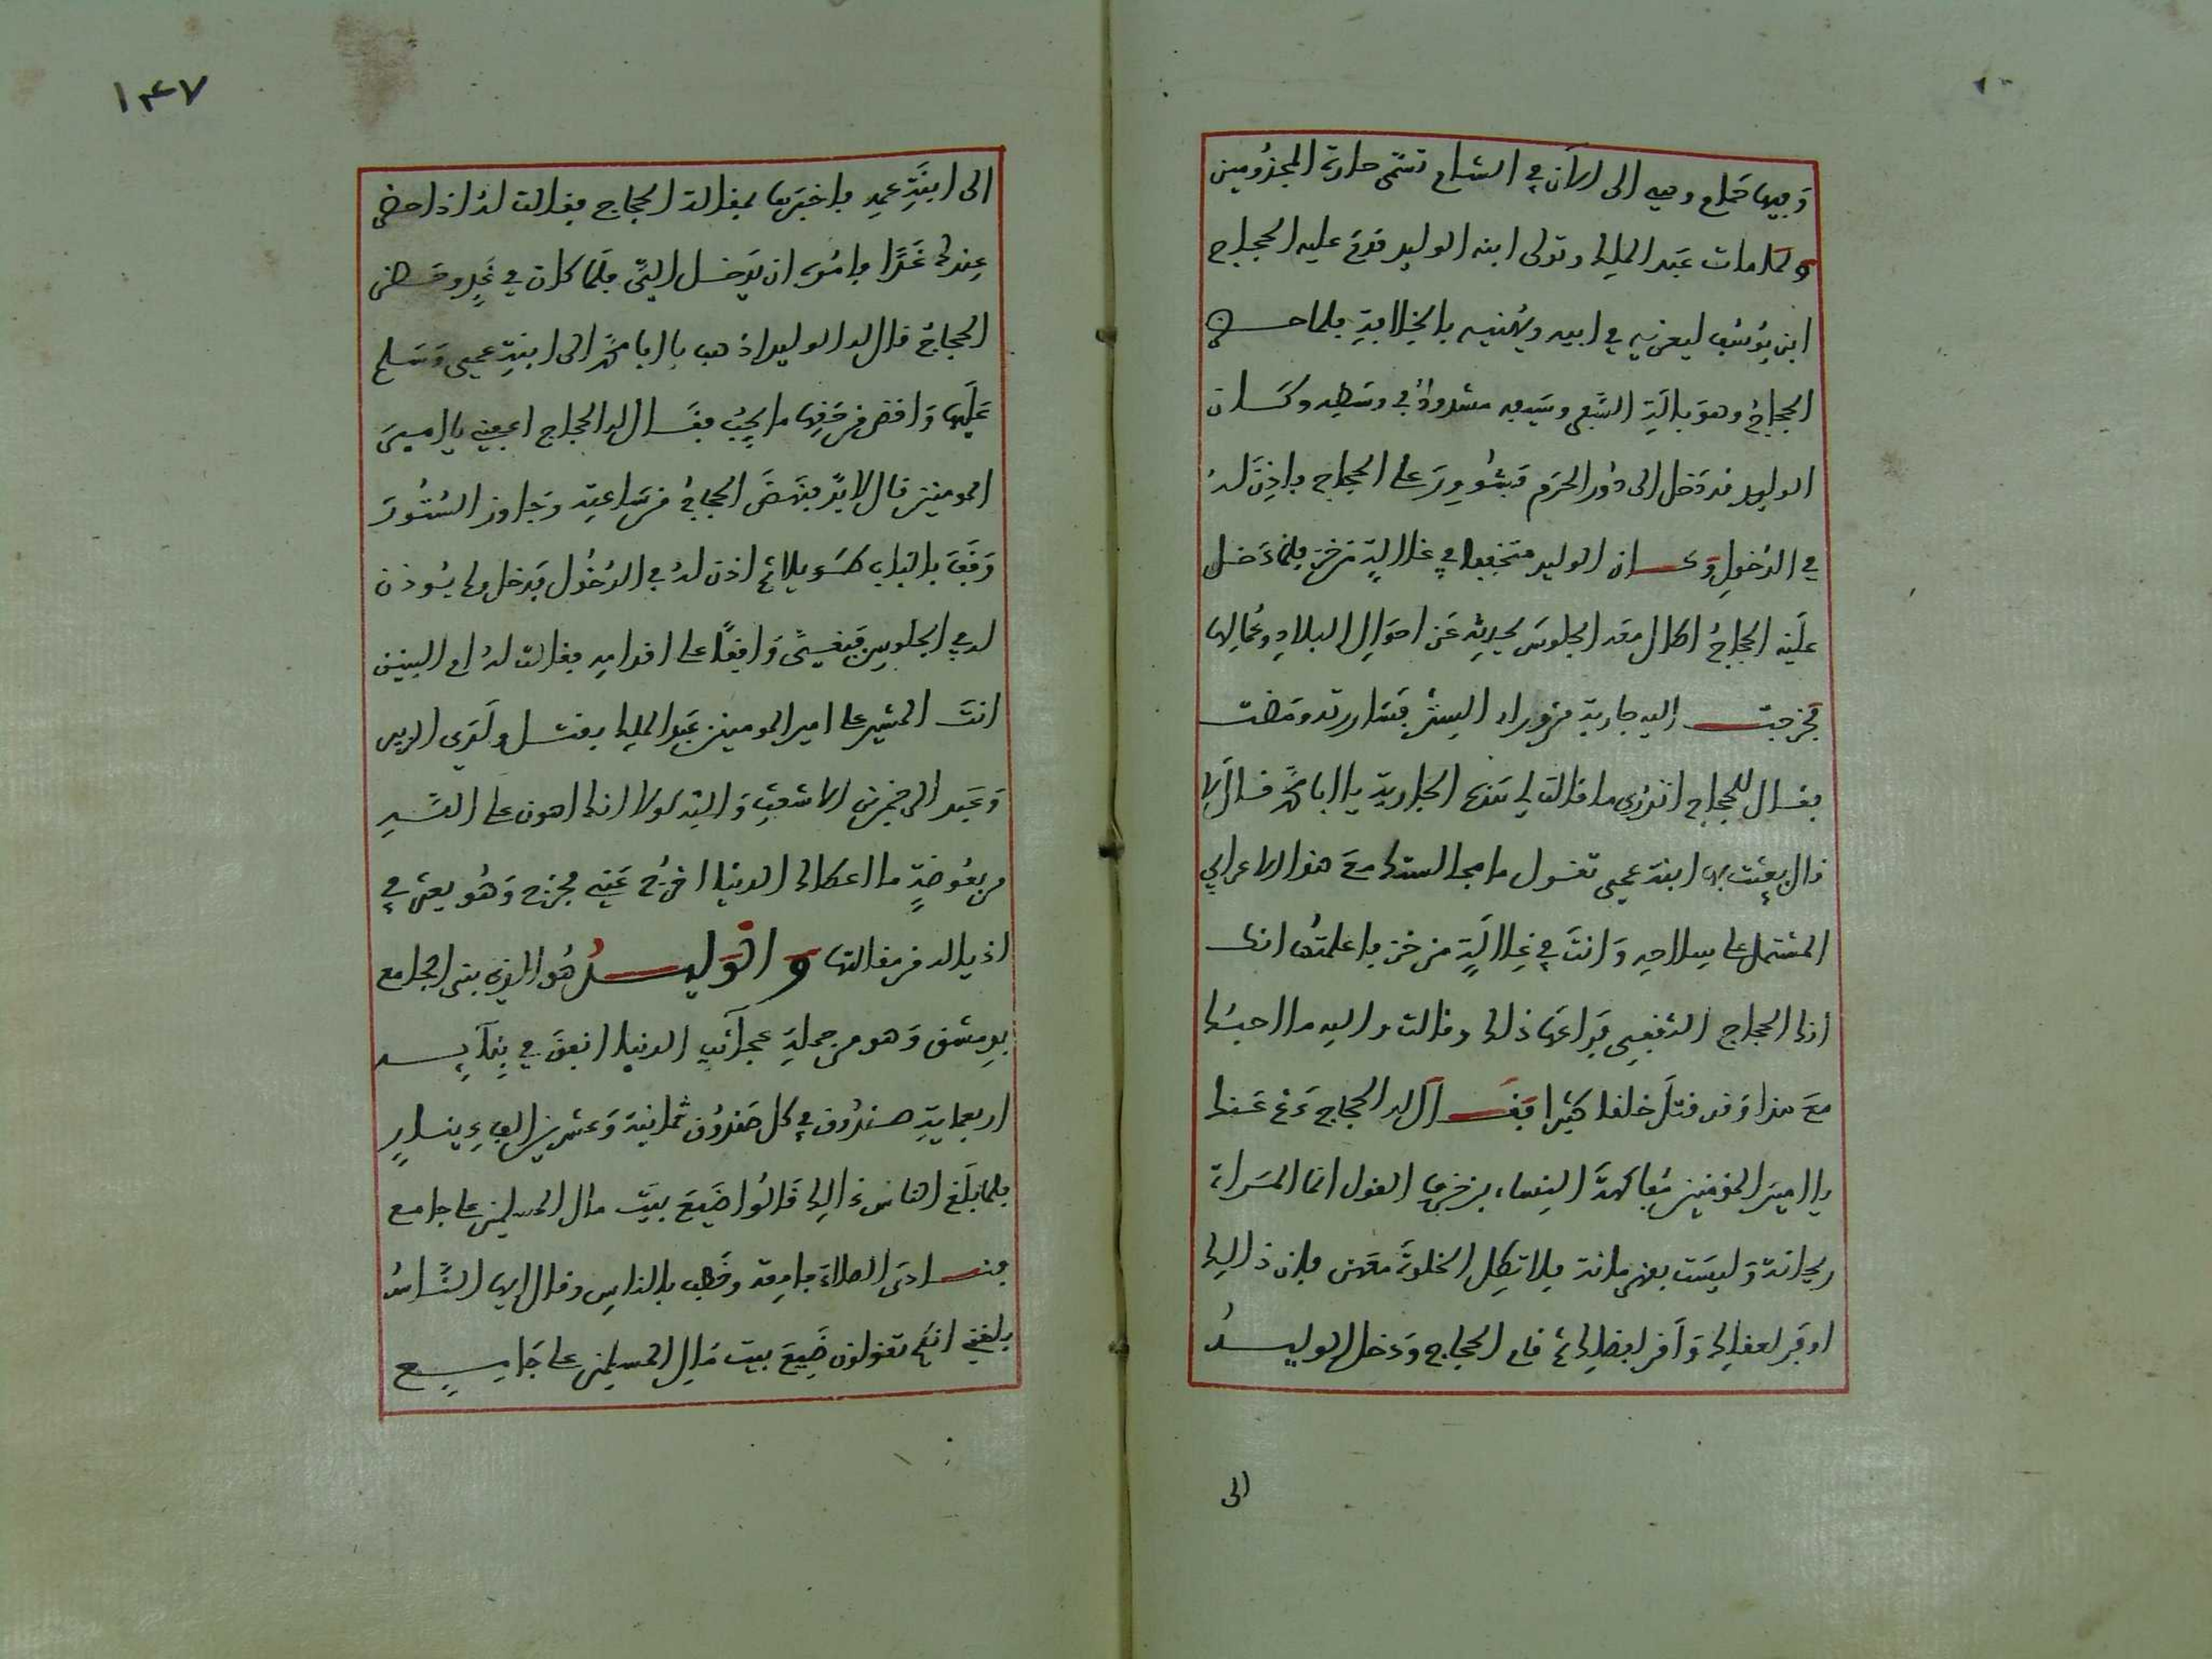 وَفيها حمّام وهي إلى الآن في الشام تسمّى حارة المجذُومين
ولما مات عَبد الملك وتولى ابنه الوليد قدِمَ عليه الحجاج
ابن يُوسُف ليعزيه في ابيه ويُهنيه بالخِلافةِ فلما حضر
الحجاجُ وهوَ بالَةِ السَّفر وسَيفه مشدودٌ في وسَطِه وكَان
الوليد قد دَخل الى دُور الحَرَم فشُووِرَ على الحجاج فاذِنَ لهُ
في الدُخولِ وَكان الوليد متخففا في غلالةٍ من خز فلما دَخل
علَيه الحجاجُ اطال معَه الجلوسَ يحدثه عَن احوَالِ البلادِ وعُمالِها
فخرجت إليه جارية من وراء السِتر فسَاررته ومَضت
فقال للحجاج اتدْرى ما قالت لي هَذه الجارية يا ابا محمّد قال لا
قال بعثت بها ابنة عمي تقول ما مجالستك معَ هذا الاعرابي
المشتمل على سِلاحه وَانتَ في غِلالَةٍ من خز فاعلمتُها انه
اذا الحجاج الثقفِي فرَاعها ذلك وقالت والله ما احبُك
معَ هذا وَقد قتلَ خلقا كثيرا فقَال له الحجاج دَعْ عَنك
يا اميرَ المؤمنين مُفاكهةَ النِساء بزخرفِ القول انما المَراة
ريحانة وَليسَت بقهرمانة فلا تطِل الخلوةَ معَهن فإن ذالك
اوفر لعقلِك وَاقر لفضلِك ثم قام الحجاج وَدخل الوليدُ
الى
١٤٧
الى ابنَةِ عمِه فاخبَرَها بمقالة الحجاج فقالت لهُ اذا حضر
عِندك غَدًا فامُرهُ ان يَدخل اليَّ فلَما كان في غَدٍ وحَضر
الحجاجُ قال له الوليد اذهب يا ابا محمّد الى ابنةِ عمي وَسَلم
عَلَيها وَاقض من حَقِها ما يجِبُ فقَال له الحجاج اعفِني يا اميرَ
المومنين قال لا بدَّ فنَهضَ الحجاجُ من سَاعته وَجاوز السُتُورَ
وَقفَ بالباب طَويلا ثم اذن لهُ في الدُخُول فَدخل ولم يُوذن
له في الجلوس فبقيَ وَاقفًا على اقدامه فقالت لهُ ام البنين
انتَ المشير على امير المومنين عَبد الملك بقتل ولَدَي الزبير
وَعَبد الرحمٰن بن الاشعثِ وَالله لولا انك اهون على الله
من بعُوضةٍ ما اعطاك الدنيا اخرُج عَني فخرج وَهُو يعثر في
اذياله من مقالتها وَالوَليدُ هُو الذي بنى الجامع
بدِمشق وَهو من جملَةِ عجائب الدنيا انفقَ في بِنائِه
اربعمايةِ صندُوق في كل صَندُوق ثمانيَة وَعشرين الف دِينارٍ
فلما بلَغ الناسَ ذالك قَالُوا ضَيعَ بيَت مال المسلمين على جامع
فنادى الصلاة جامِعة وخَطب بالناسِ وقال ايها النَّاسُ
بلغني انكم تقولون ضَيعَ بيت مَال المسلمين على جَامِعٍ